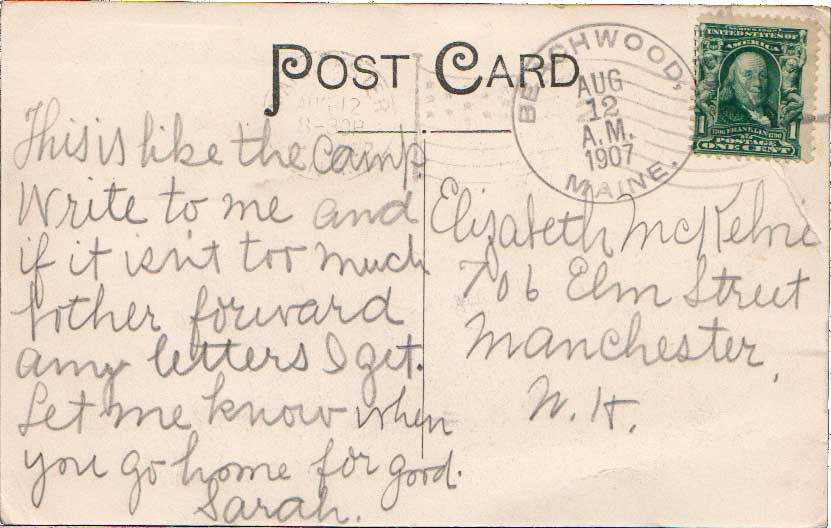 POST CARD
BEECHWOOD,
AUG
12
A.M.
1907
MAINE.
UNITED STATES OF
AMERICA
1706 FRANKLIN 1790
1 1
POSTAGE
ONE CENT
This is like the camp.
Write to me and
if it isn't too much
bother forward
any letters I get.
Let me know when
you go home for good.
Sarah.
Elizabeth McKelvie
706 Elm Street
Manchester,
N. H.